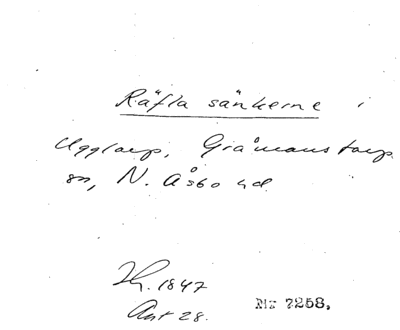 Räfla sänkerne i
Ugglarp, Gråmanstorps
sn, N. Åsbo hd.
1847
Akt 28.
Nr 7258,